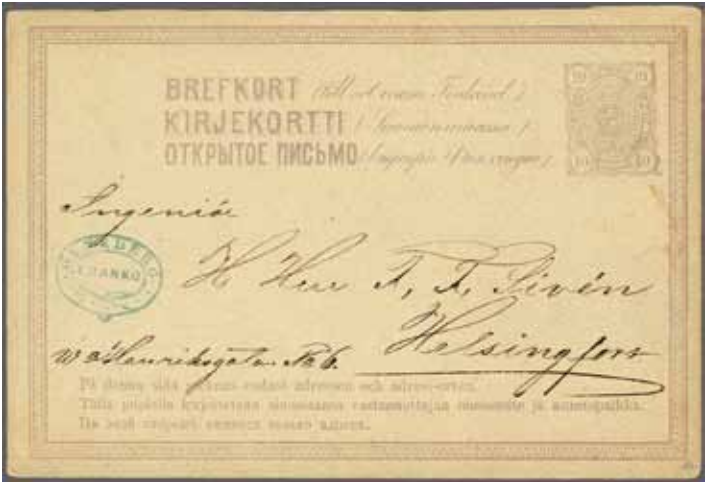 BREFKORT (till ort inom Finland.)
KIRJEKORTTI (Suomenmaassa)
ОТКРЫТОЕ ПИСЬМО
10 10
10 10
Ingeniör
FRANKO
H Herr F. F. Sivén
Helsingfors
No 6.
På denna sida skrifves endast adressen och adress-orten.
Tälle puolelle kirjoitetaan ainoastaan vastaanottajan nimi ja asuntopaikka.
На этой сторонѣ пишется только адресъ.